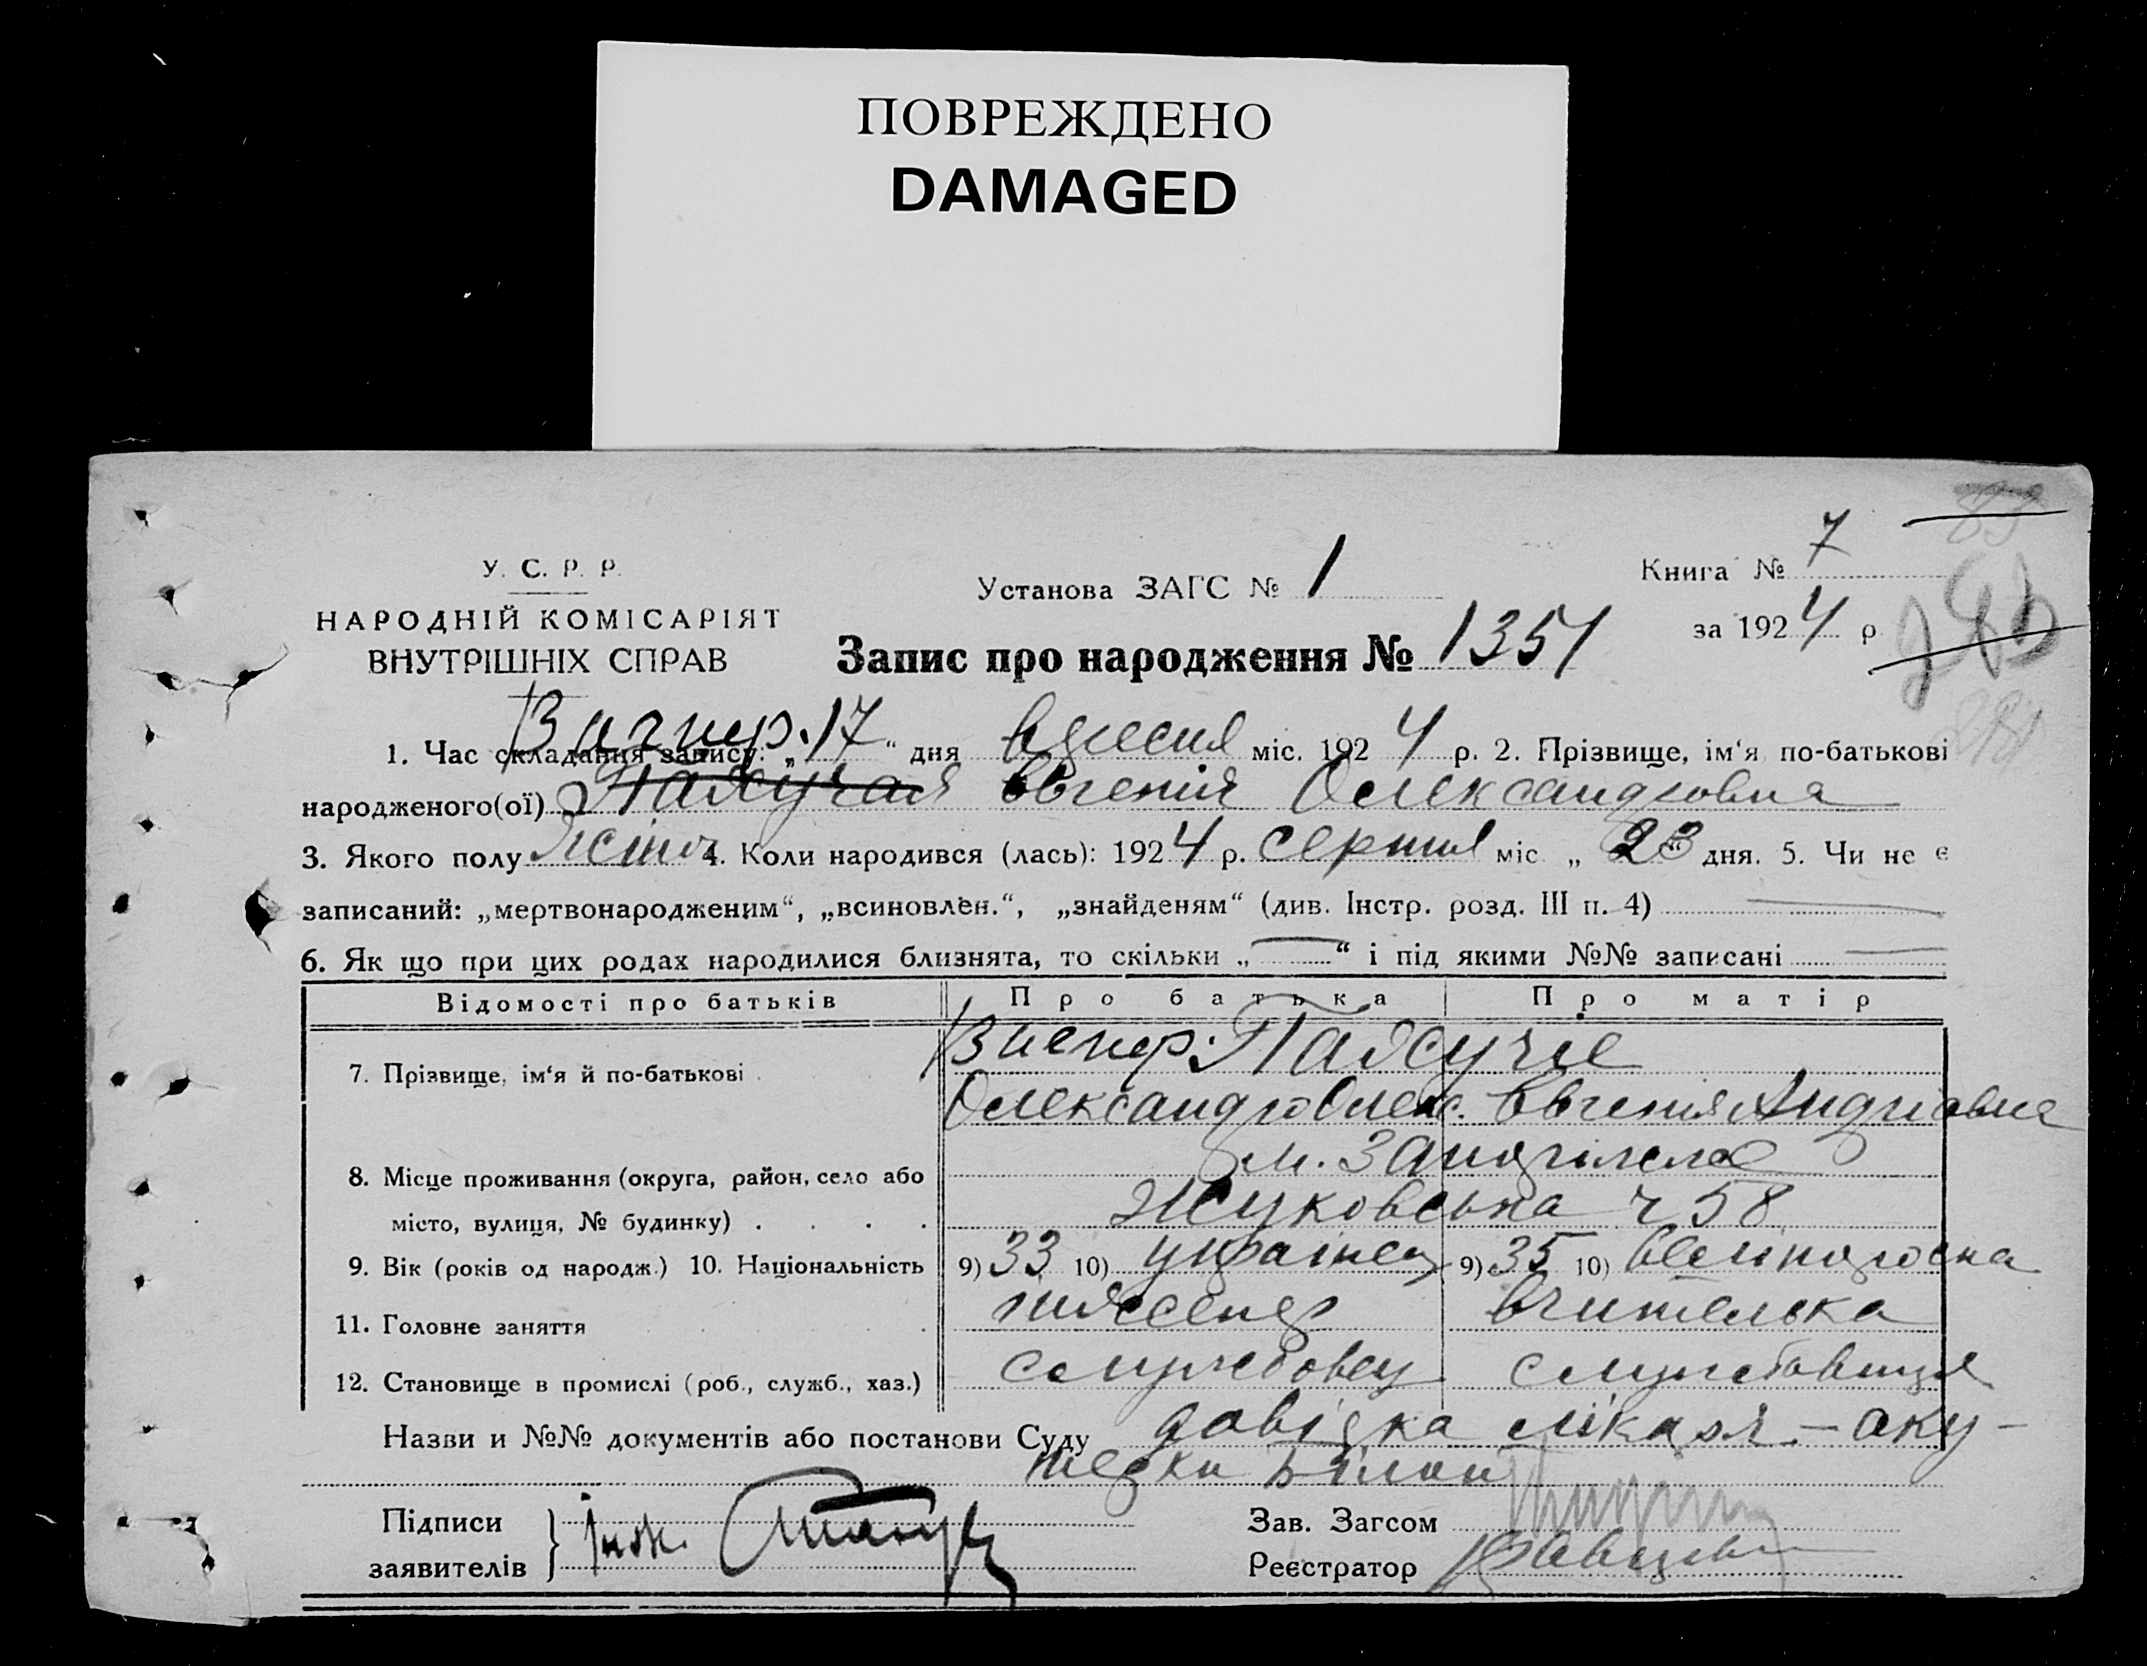 ПОВРЕЖДЕНО
DAMAGED
У. С. Р. Р.
НАРОДНІЙ КОМІСАРІЯТ
ВНУТРІШНІХ СПРАВ
Установа ЗАГС № 1
Запис про народження № 1351
Книга № 7
за 1924 р
1. Час складання запису: „17“ дня вересня міс. 1924 р. 2. Прізвище, ім‘я по-батькові
народженого(ої) Евгенія Олександровна
3. Якого полу 4. Коли народився (лась): 1924 р. серпня міс „23“ дня. 5. Чи не є
записаний: „мертвонародженим“, „всиновлен.“, „знайденям“ (див. Інстр. розд. III п. 4)
6. Як що при цих родах народилися близнята, то скільки „ “ і під якими №№ записані
Відомості про батьків Про батька Про матір
7. Прізвище, ім‘я й по-батькові
Олександр Олекс. Евгенія Андріовна
8. Місце проживання (округа, район, село або
м.
місто, вулиця, № будинку) Жуковська ч 58
9. Вік (років од народж.) 10. Національність 9) 33 10) украінец 9) 35 10)
11. Головне заняття вчителька
12. Становище в промислі (роб., служб., хаз.) службовец службовиця
Назви и №№ документів або постанови Суду довідка лікаря - аку-
шерки
Підписи
заявителів
інж.
Зав. Загсом
Реєстратор